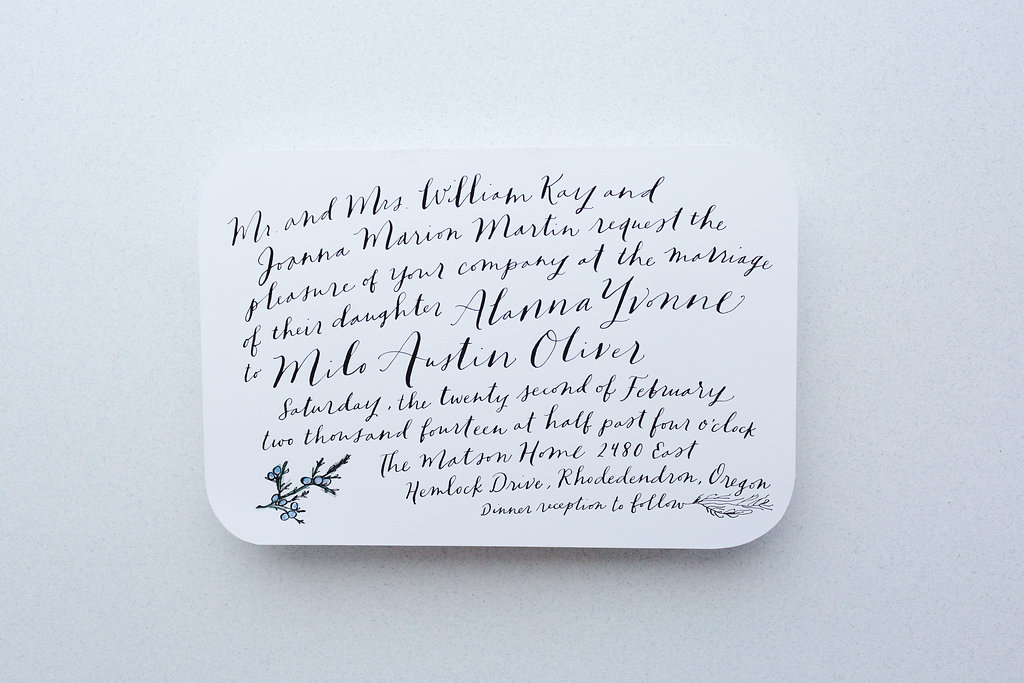 Mr. and Mrs. William Kay and
Joanna Marion Martin request the
pleasure of your company at the marriage
of their daughter Alanna Yvonne
to Milo Austin Oliver
Saturday, the twenty second of February
two thousand fourteen at half past four o'clock
The Matson Home 2480 East
Hemlock Drive, Rhodedendron, Oregon
Dinner reception to follow